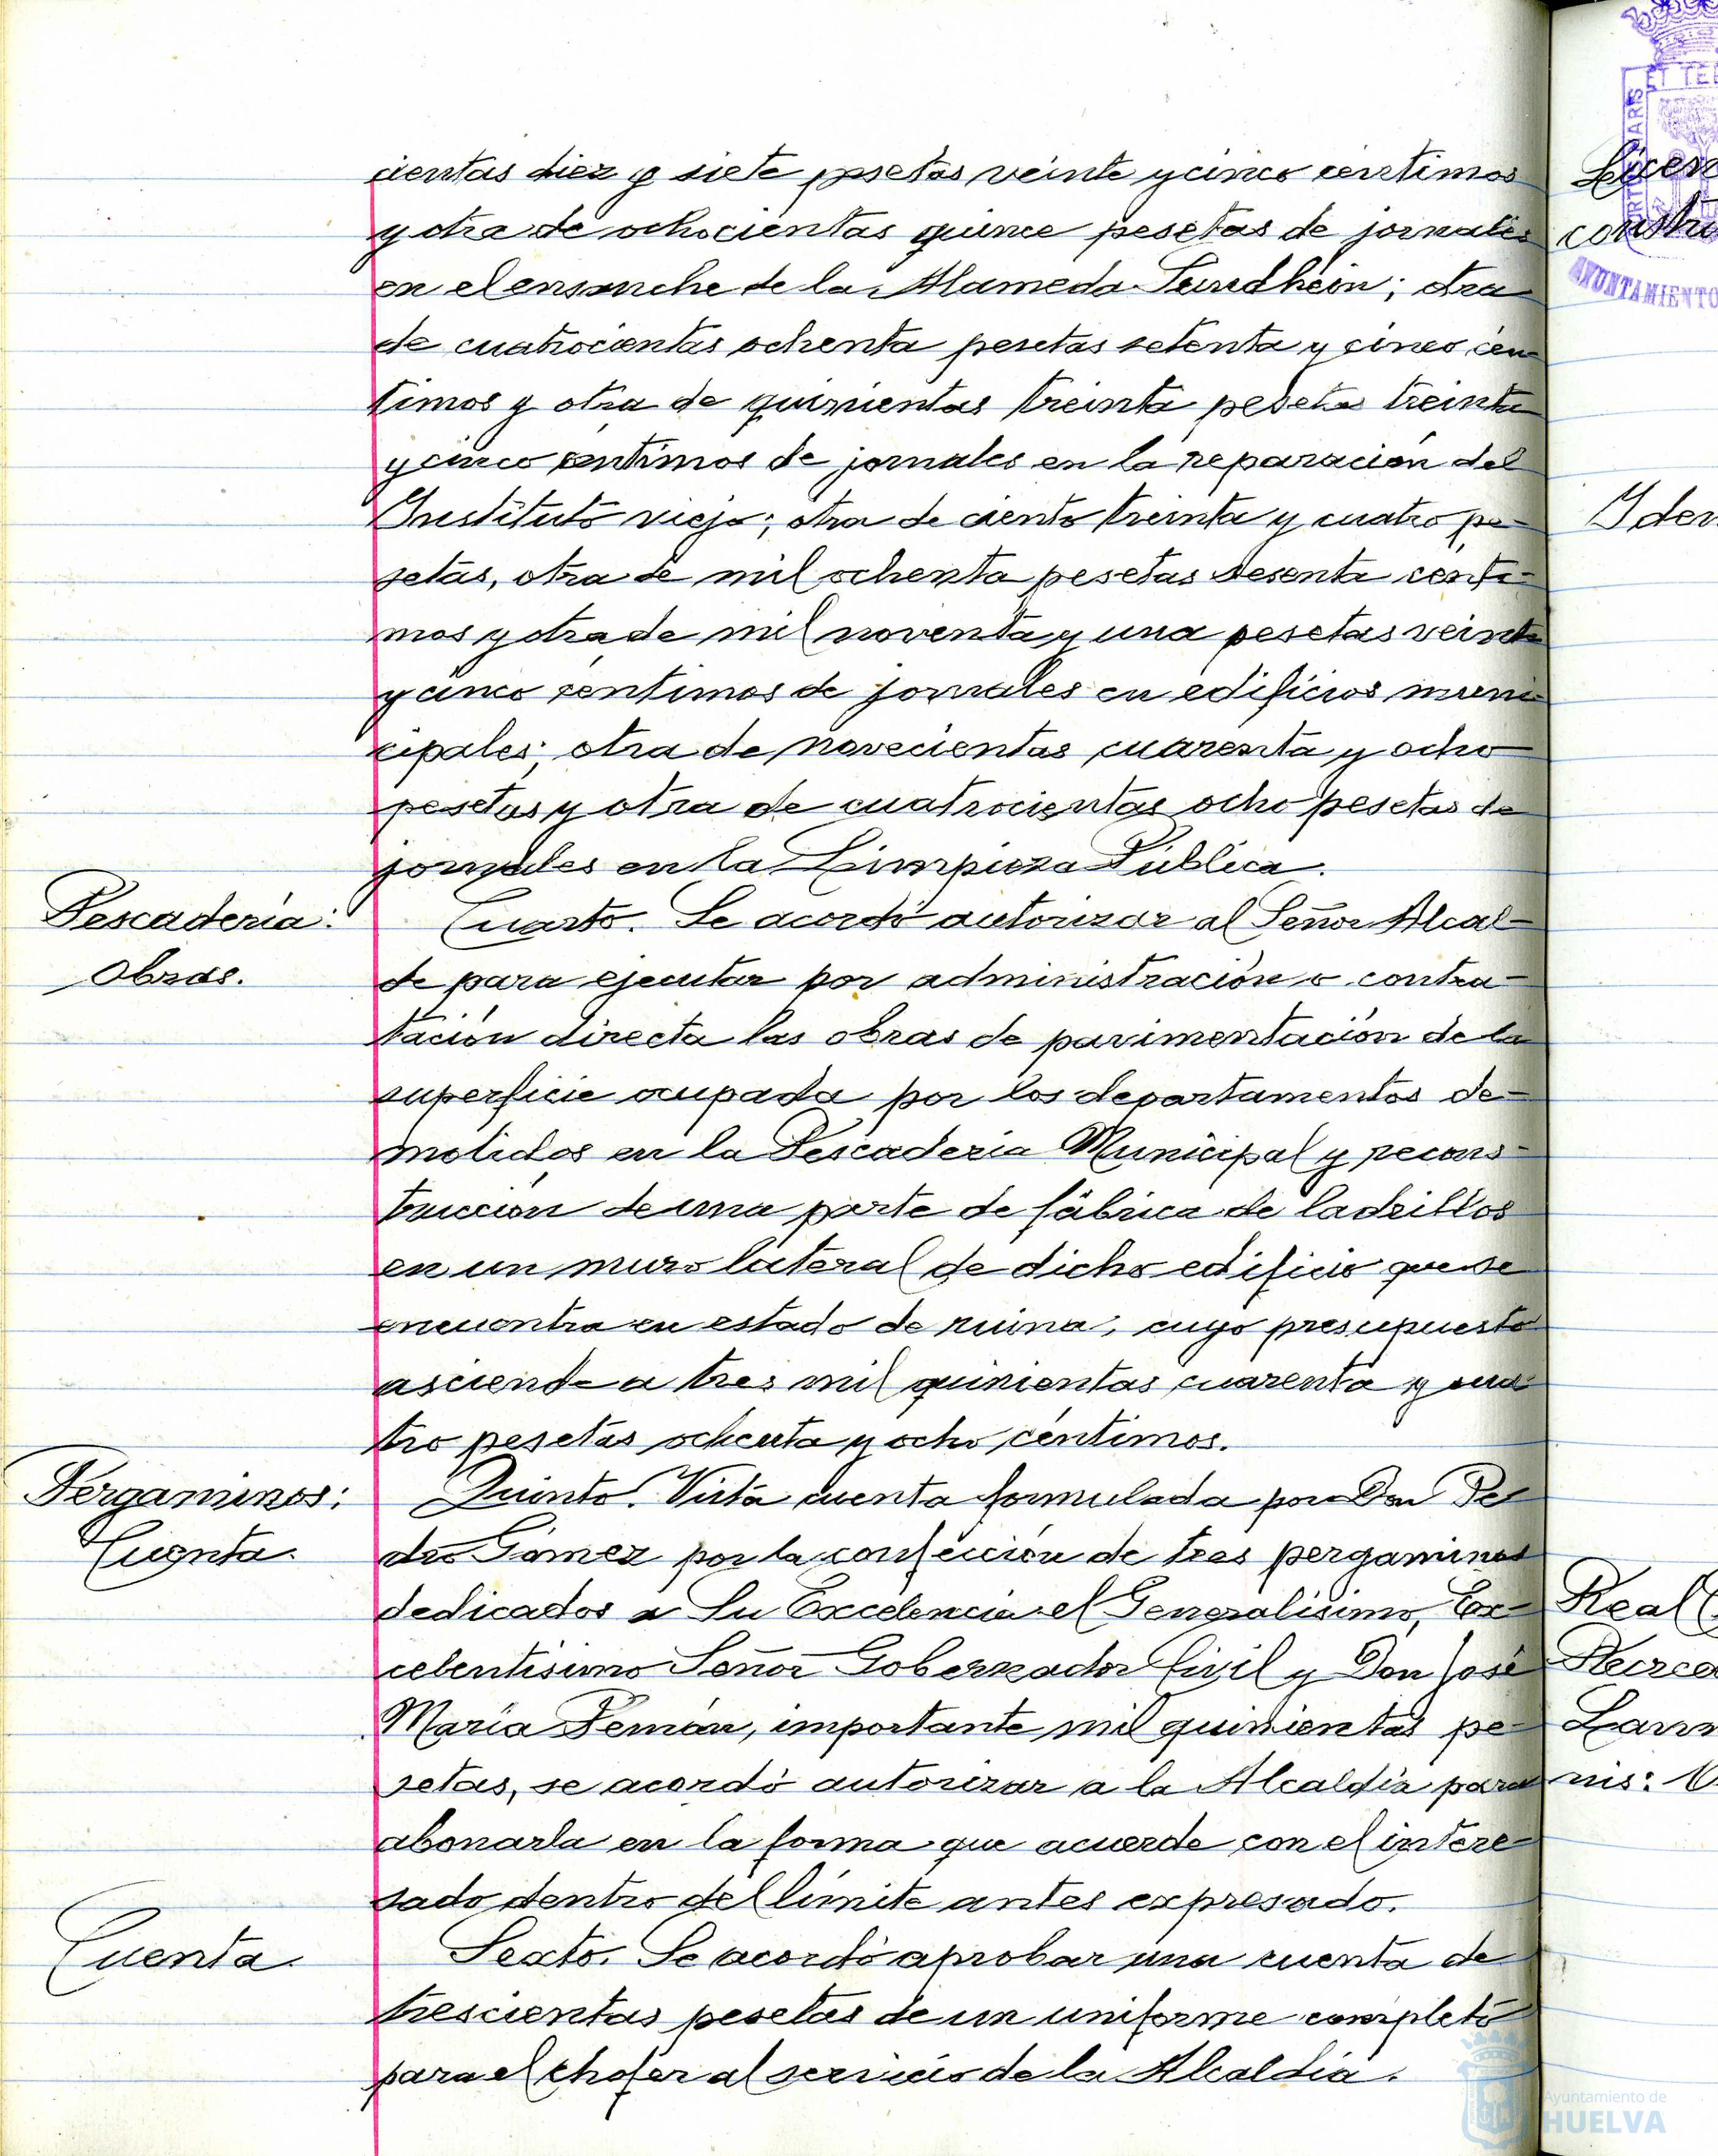 cientas diez y siete pesetas veinte y cinco centimos
y otra de ochocientas quince pesetas de jornales
en el ensanche de la Alameda Sundhein; otra
de cuatrocientas ochenta pesetas setenta y cinco cén
timos y otra de quinientas treinta pesetas treinta
y cinco centimos de jornales en la reparación del
Instituto viejo; otra de ciento treinta y cuatro pe-
setas, otra de mil ochenta pesetas sesenta cénti-
mos y otra de mil noventa y una pesetas veinte
y cinco céntimos de jornales en edificios muni
cipales; otra de novecientas cuarenta y ocho
pesetas y otra de cuatrocientas ocho pesetas de
jornales en la Limpieza Pública.
Pescadería:
Obras.
Cuarto. Se acordó autorizar al Señor Alcal-
de para ejecutar por administración o contra-
tación directa las obras de pavimentación de la
superficie ocupada por los departamentos de-
molidos en la Pescaderia Municipal y recons-
trucción de una parte de fábrica de ladrillos
en un muro lateral de dicho edificio que se
encuentra en estado de ruina, cuyo presupuesto
asciende a tres mil quinientas cuarenta y cua
tro pesetas ochenta y ocho céntimos.
Pergaminos:
Cuenta.
Quinto. Vista cuenta formulada por Don Pe
dro Gómez por la confección de tres pergaminos
dedicados a Su Excelencia el Generalísimo, Ex-
celentísimo Señor Gobernador Civil y Don José
María Pemán, importante mil quinientas pe-
setas, se acordó autorizar a la Alcaldía para
abonarla en la forma que acuerde con el intere-
sado dentro del límite antes expresado.
Cuenta.
Sexto. Se acordó aprobar una cuenta de
trescientas pesetas de un uniforme completo
para el chofer al servicio de la Alcaldía.
ET TE
AYUNTAMIENTO
Licen
constru
Iden
Real
Larr
nis:
Ayuntamiento de
HUELVA